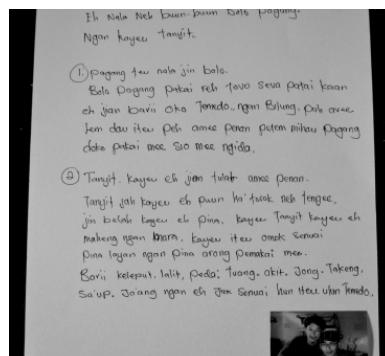 Eh Nala Neh buan-buan Bolo pagang.
Ngan kayeu tanyit.
① Pagang teu nala jin bolo.
Bolo pagang pakai reh tovo seva patai kaan
eh jian barii oko Temedo, ngan Bilung. Pah avee
lem dau iteu Peh amee penan putem mihau pagang
doko pakai mee sio mee ngidia.
② Tanyit. Kayeu eh jian tulat amee penan.
Tanyit jah kayeu eh puun ha' tusok neh tengee,
jin belah kayeu eh pina. Kayeu Tanyit kayeu eh
maheng ngan mara. Kayeu iteu omok senuai
pina layan ngan pina arong pemakai mee.
Barii keleput. lalit, pedai, tuang. akit. Jong. Takeng.
Sa'up. Ja'ang ngan eh jian senuai hun iteu ukun Temedo.